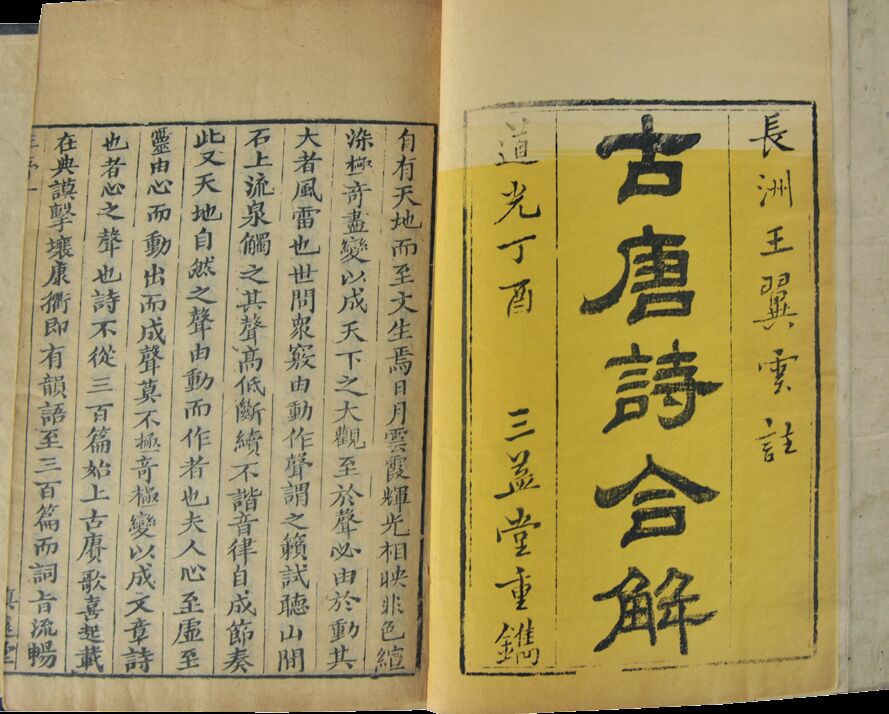 長洲王翼雲註
古唐詩合解
道光丁酉 三益堂重鐫
自有天地而至文生焉日月雲霞輝光相映非色絢
染極奇盡變以成天下之大觀至於聲必由於動其
大者風雷也世間衆竅由動作聲謂之籟試聽山間
石上流泉觸之其聲高低斷續不諧音律自成節奏
此又天地自然之聲由動而作者也夫人心至虛至
靈由心而動出而成聲莫不極奇極變以成文章詩
也者心之聲也詩不從三百篇始上古賡歌喜起載
在典謨擊壤康衢即有韻語至三百篇而詞旨流暢